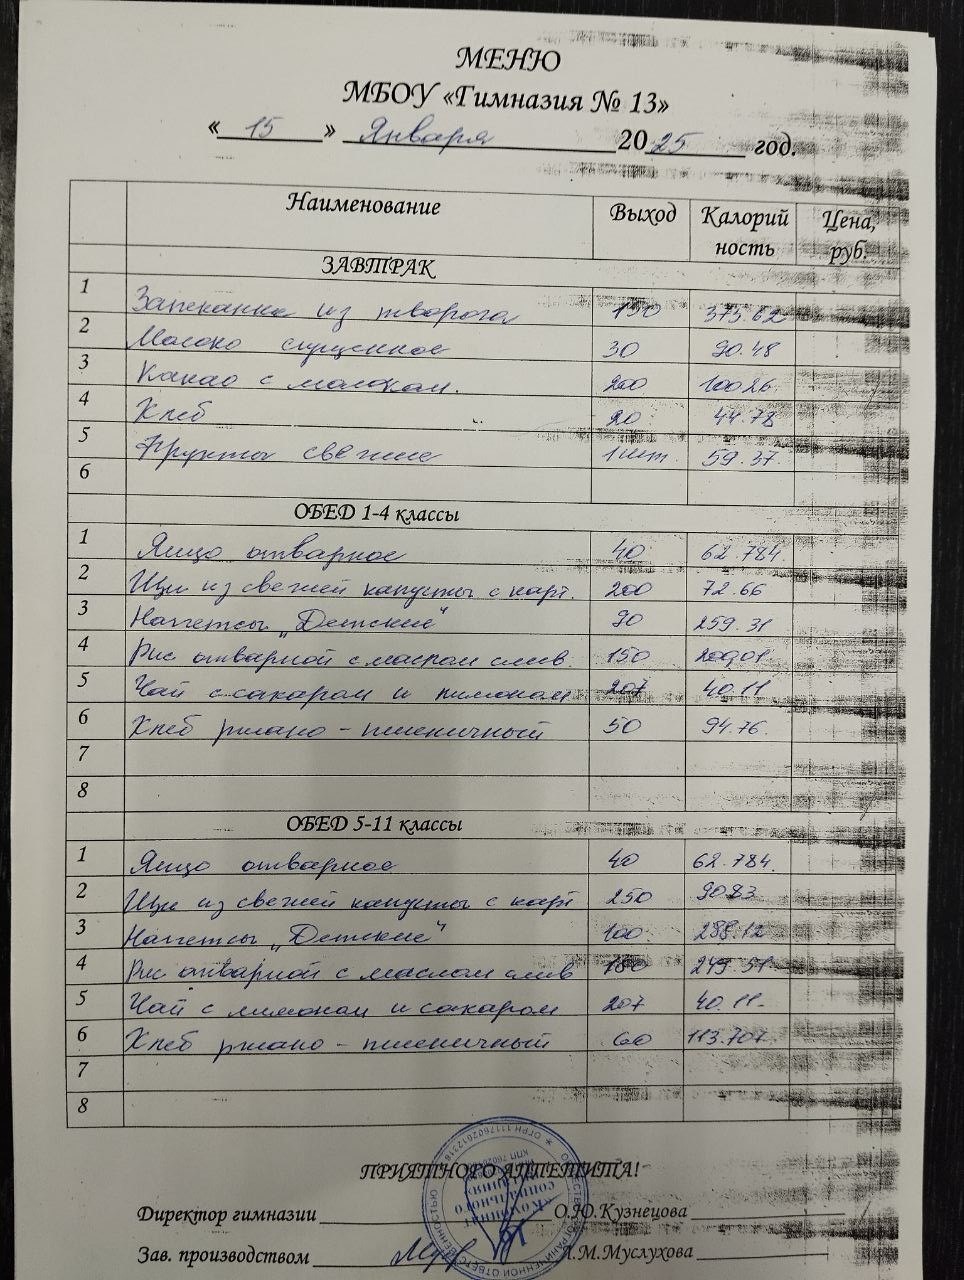 МЕНЮ
МБОУ «Гимназия № 13»
« 15 » Января 2025 год.
Наименование Выход Калорийность Цена, руб.
ЗАВТРАК
1 Запеканка из творога 150 373.62
2 Молоко сгущенное 30 90.48
3 Какао с молоком. 200 100 26
4 Хлеб 20 44.78
5 Фрукты свежие 1 шт. 59.37
6
ОБЕД 1-4 классы
1 Яйцо отварное 40 62.784
2 Щи из свежей капусты с карт. 200 72.66
3 Наггетсы „Детские" 90 259.31
4 Рис отварной с маслом слив 150
5 Чай с сахаром и лимоном 207 40.11
6 Хлеб ржано-пшеничный 50 94.76
7
8
ОБЕД 5-11 классы
1 Яйцо отварное 40 62.784
2 Щи из свежей капусты с карт 250 90.83
3 Наггетсы „Детские" 100 288.12
4 Рис отварной с маслом слив 180 249.51
5 Чай с лимоном и сахаром 207 40.11
6 Хлеб ржано-пшеничный 60 113.707
7
8
ПРИЯТНОГО АППЕТИТА!
Директор гимназии О.Ю.Кузнецова
Зав. производством Л.М.Муслухова